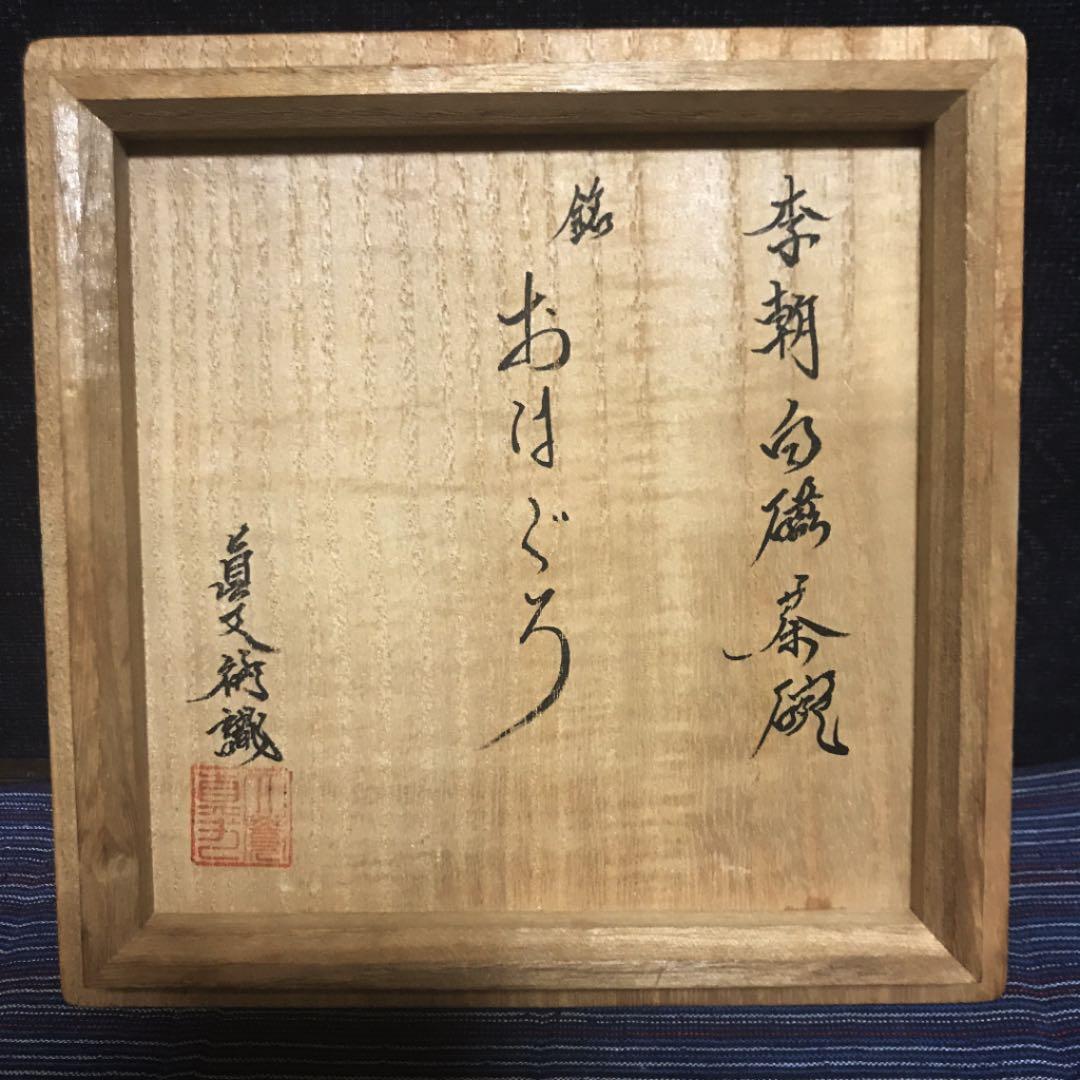 李朝白磁茶碗
銘
おはぐろ
眞文術識